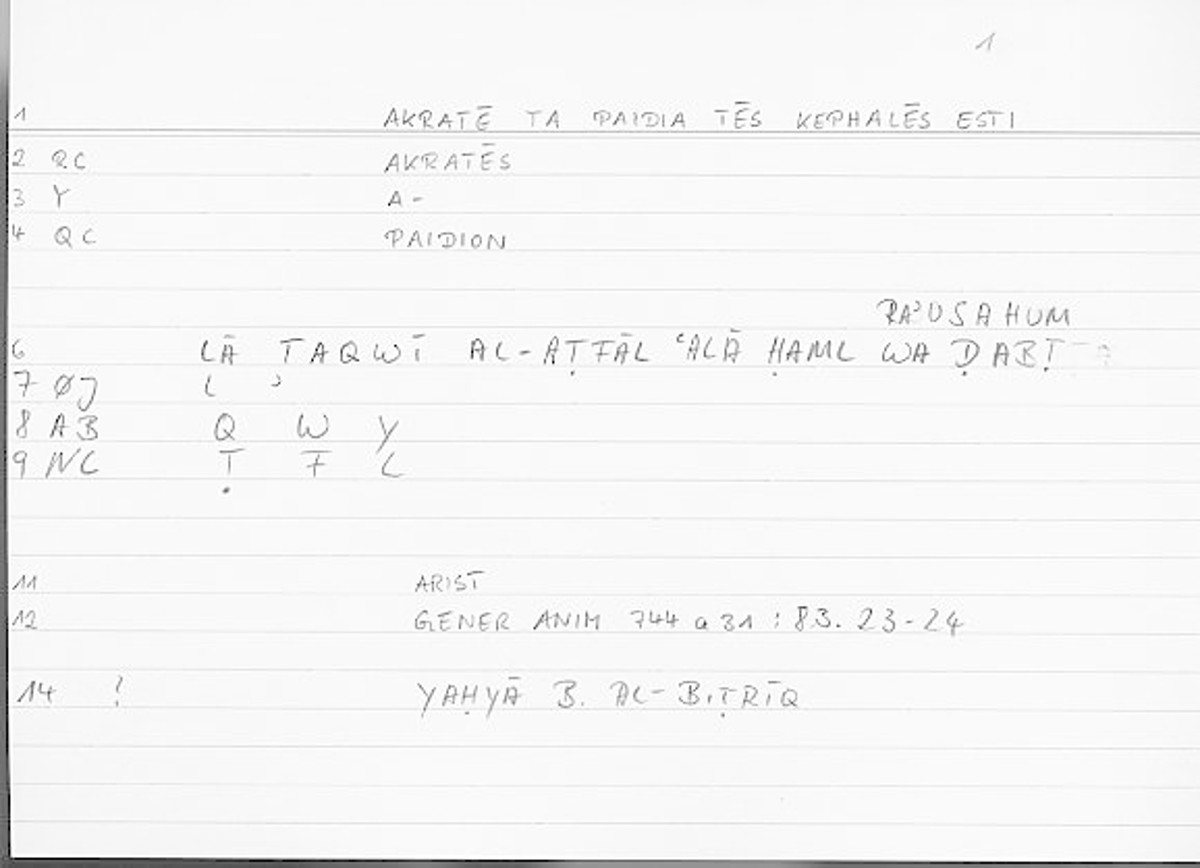 1
1 AKRATĒ TA PAIDIA TĒS KEPHALĒS ESTI
2 QC AKRATĒS
3 Y A-
4 QC PAIDION
RAʾUSAHUM
6 LĀ TAQWĪ AL-AṬFĀL ʿALĀ ḤAML WA ḌABṬ
7 ØJ L ʾ
8 AB Q W Y
9 NC Ṭ F L
11 ARIST
12 GENER ANIM 744 a 31 : 83. 23-24
14 ! YAḤYĀ B. AL-BIṬRĪQ